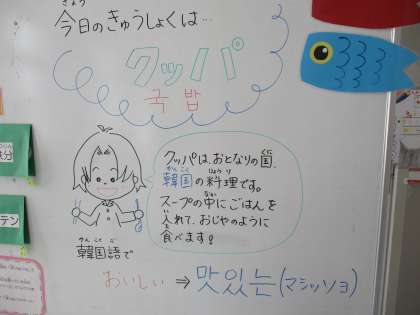 今日のきゅうしょくは…
クッパ
국밥
クッパは、おとなりの国、
韓国の料理です。
スープの中にごはんを
入れて、おじやのように
食べます!
韓国語で
おいしい ⇒ 맛있는(マシッソヨ)
鉄分
テン